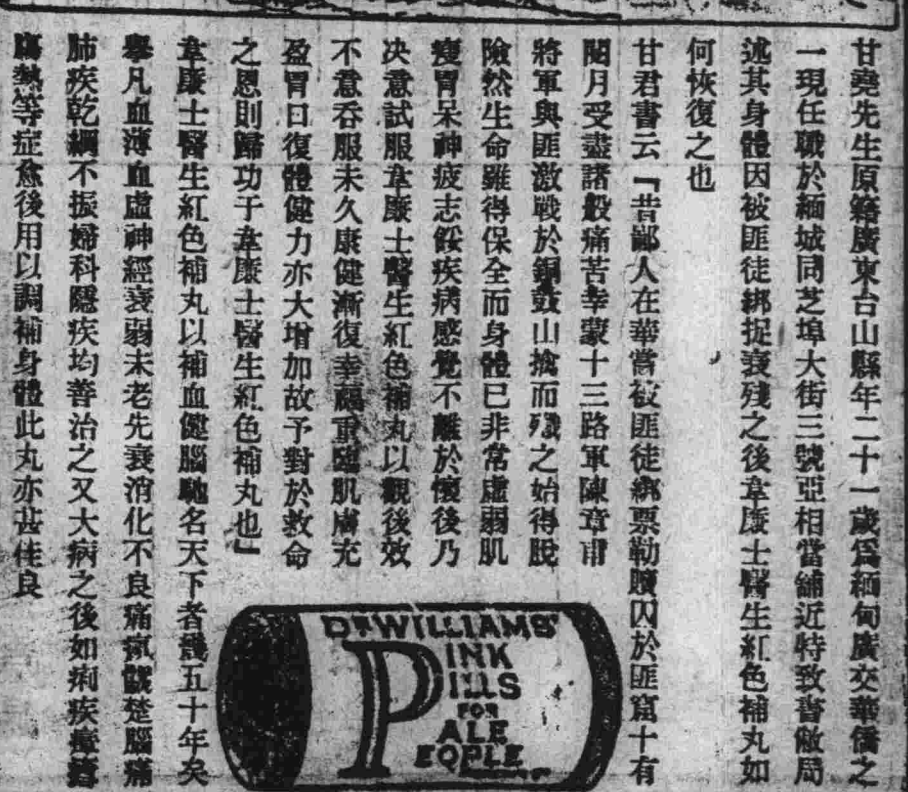 甘堯先生原籍廣東台山縣年二十一歲爲緬甸廣交華僑之
一現任職於緬城同芝埠大街三號亞相當舖近特致書敝局
述其身體因被匪徒綁捉衰殘之後韋廉士醫生紅色補丸如
何恢復之也
甘君書云『昔鄙人在華嘗被匪徒綁票勒贖囚於匪窟十有
閱月受盡諸般痛苦幸蒙十三路軍陳章甫
將軍與匪激戰於銅鼓山擒而殲之始得脫
險然生命雖得保全而身體已非常虛弱肌
瘦胃呆神疲志餒疾病感覺不離於懷後乃
决意試服韋廉士醫生紅色補丸以觀後效
不意吞服未久康健漸復幸福重臨肌膚充
盈胃口復體健力亦大增加故予對於救命
之恩則歸功于韋廉士醫生紅色補丸也』
韋廉士醫生紅色補丸以補血健腦馳名天下者幾五十年矣
舉凡血薄血虛神經衰弱未老先衰消化不良痛瘋酸楚腦痛
肺疾乾綱不振婦科隱疾均善治之又大病之後如痢疾瘴瘧
腸熱等症愈後用以調補身體此丸亦甚佳良
DR WILLIAMS'
PINK
PILLS
FOR
PALE
PEOPLE